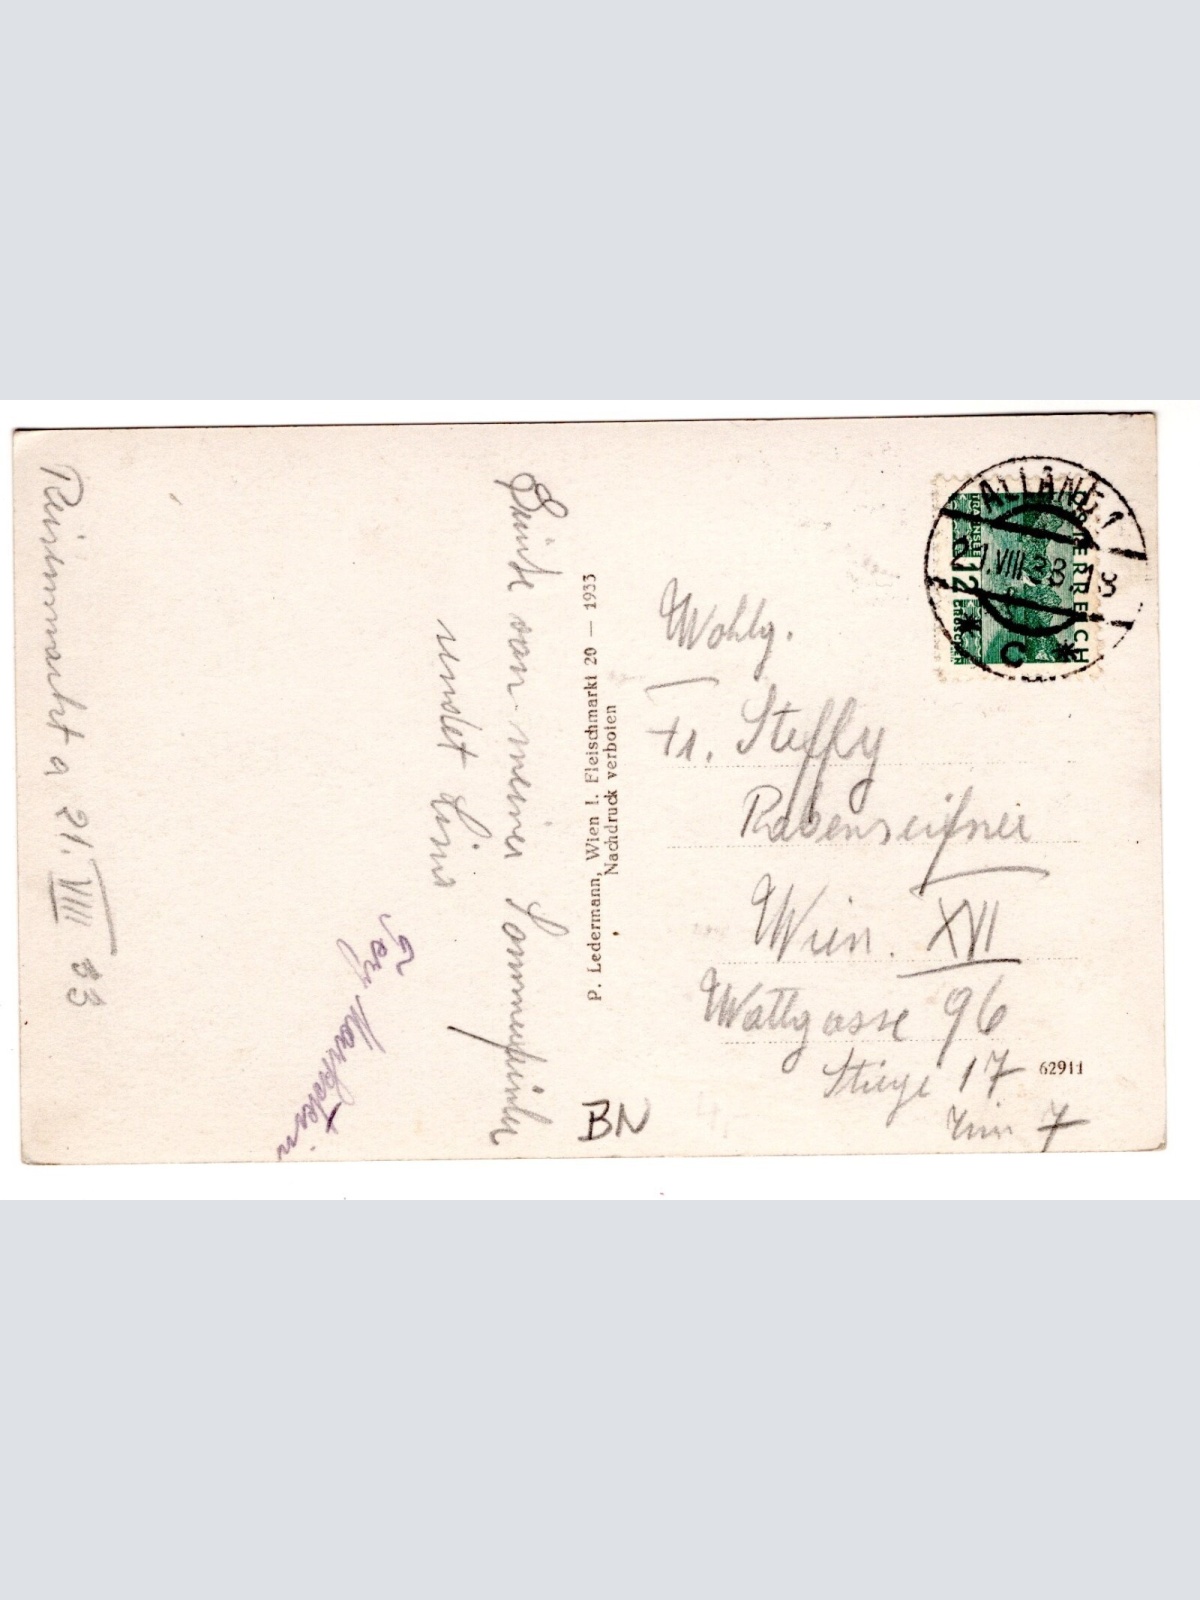 Reisenmarkt a 21. VIII 33
Grüße von meiner Sommerfrische
sendet
P. Ledermann, Wien I. Fleischmarkt 20 — 1933
Nachdruck verboten
ÖSTERREICH
TRAUNSEE
12 GROSCHEN
ALLAND 1
21.VIII.33.18
* C *
Wohlg.
Fr. Steffly
Rabenseifner
Wien. XVII
Wattgasse 96
Stiege 17
7
62911
BN